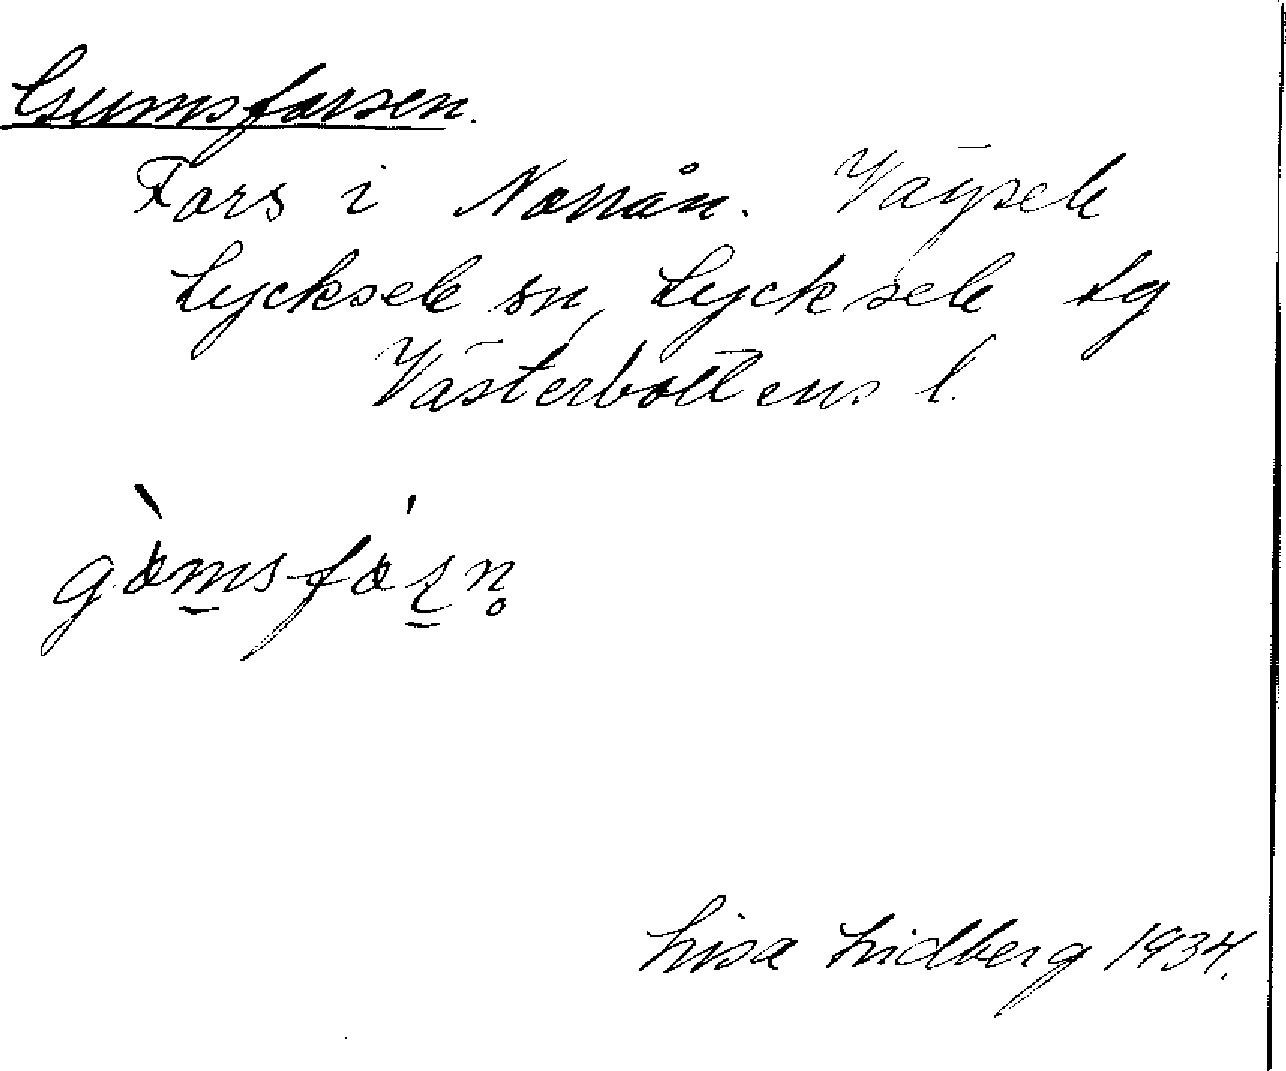 Gumsforsen.
Fors i Norrån. Vägsele
Lycksele sn, Lycksele lg
Västerbottens l.
Lisa Lidberg 1934.